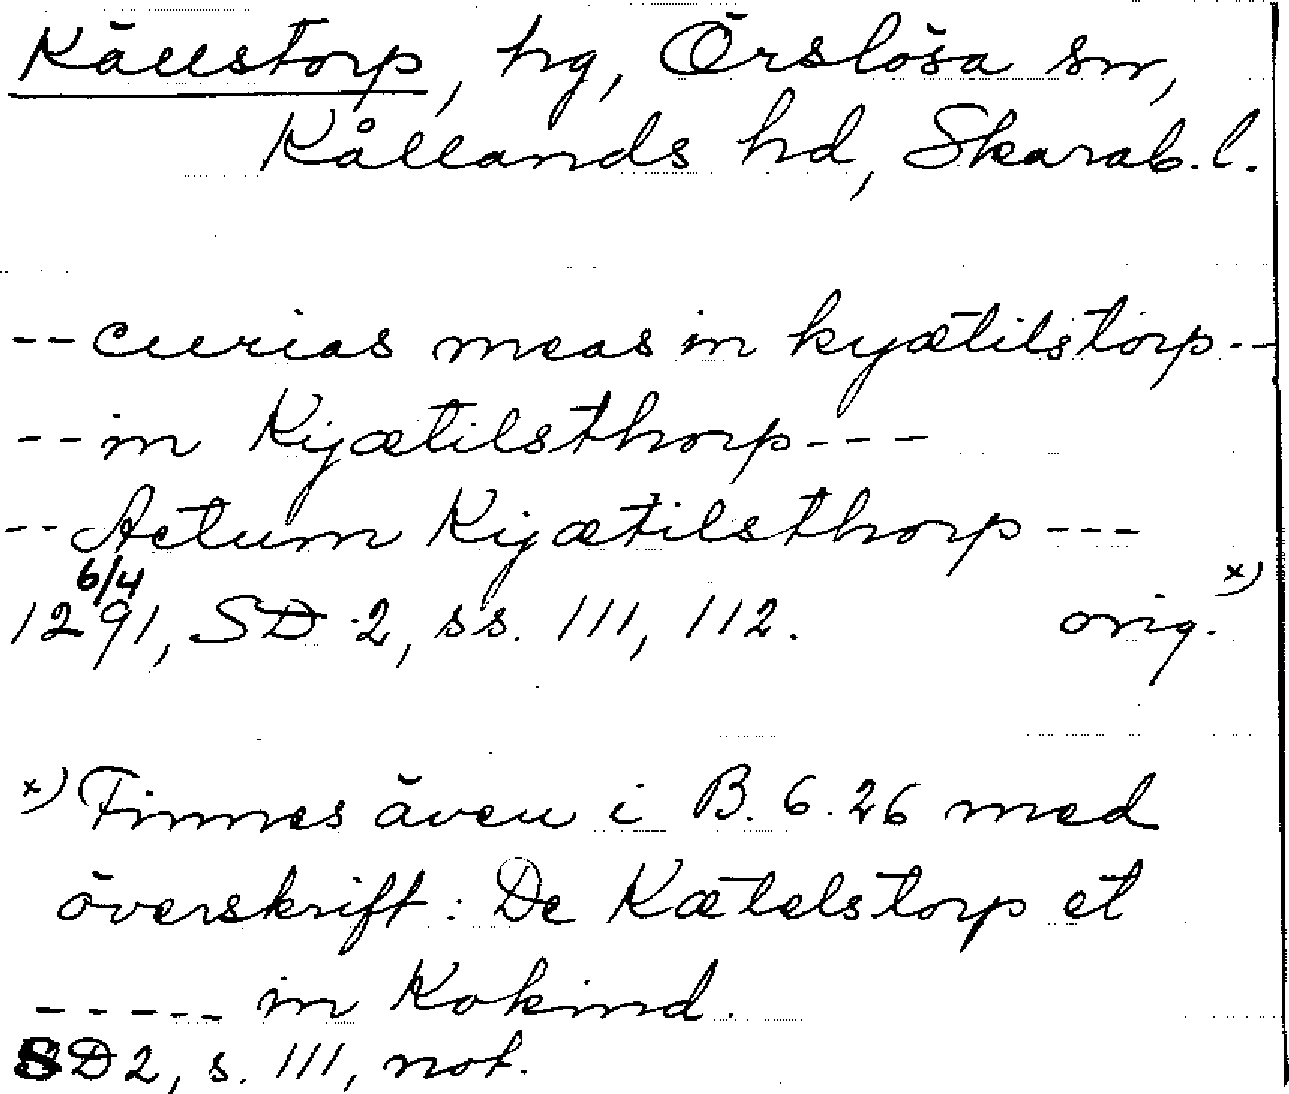 Källstorp, hg, Örslösa sn,
Kållands hd, Skarab. l.
-- curias meas in kyætilstorp --
-- in Kyætilsthorp ---
-- Actum Kyætilsthorp ---
6/4
1291, SD 2, ss. 111, 112. orig. x)
x) Finnes även i B. 6. 26 med
överskrift: De Kætelstorp et
----- in Kokind.
SD 2, s. 111, not.